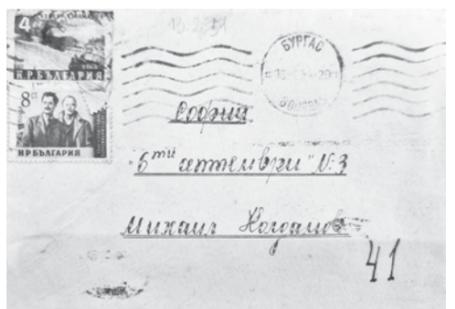 4
Н.Р.БЪЛГАРИЯ
8
НР БЪЛГАРИЯ
БУРГАС
София
"6ти септември" №3
Михаил
41